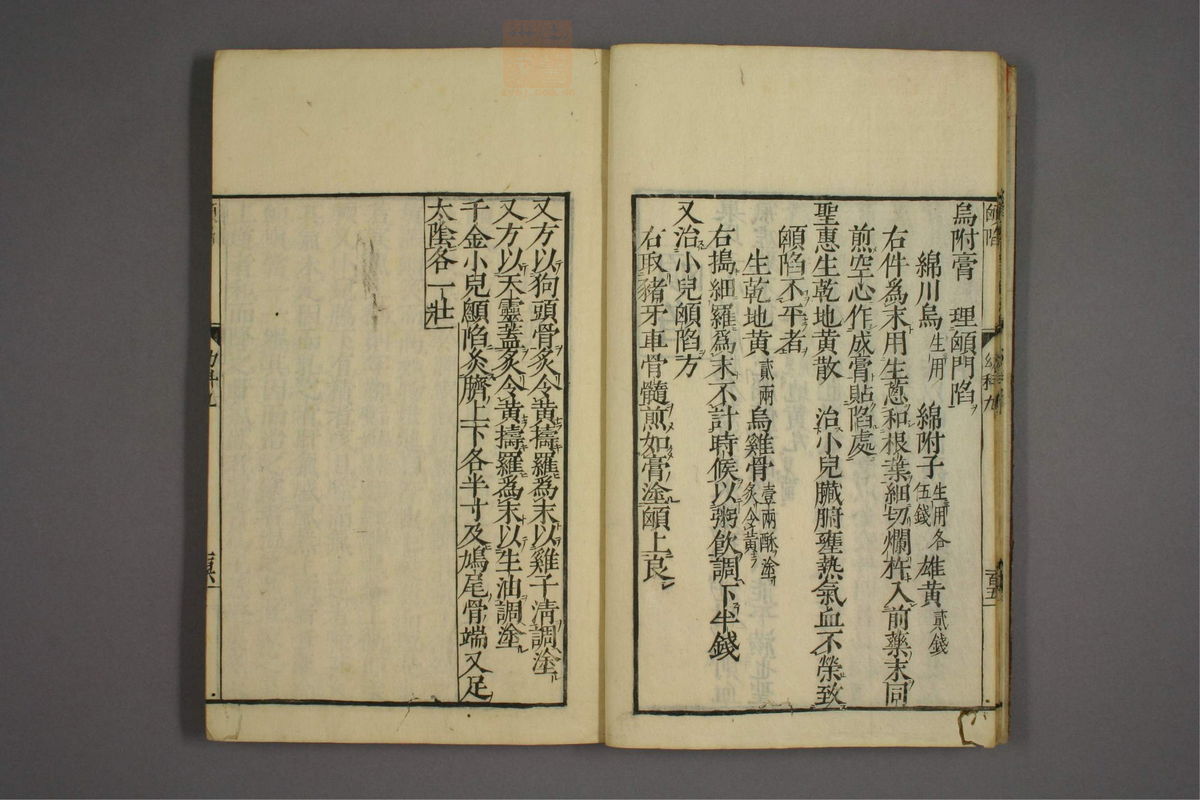 顖陷
幼科九
百五
烏附膏　理顖門陷
綿川烏生用　綿附子生用各伍錢　雄黃貳錢
右件爲末用生蔥和根葉細切爛杵入前藥末同
煎空心作成膏貼陷處
聖惠生乾地黃散　治小兒臟腑壅熱氣血不榮致
顖陷不平者
生乾地黃貳兩　烏雞骨壹兩酥塗炙令黃
右搗細羅爲末不計時候以粥飲調下半錢
又治小兒顖陷方
右取豬牙車骨髓煎如膏塗顖上良
又方以狗頭骨炙令黃擣羅爲末以雞子清調塗
又方以天靈蓋炙令黃擣羅爲末以生油調塗
千金小兒顖陷灸臍上下各半寸及鳩尾骨端又足
太陰各一壯